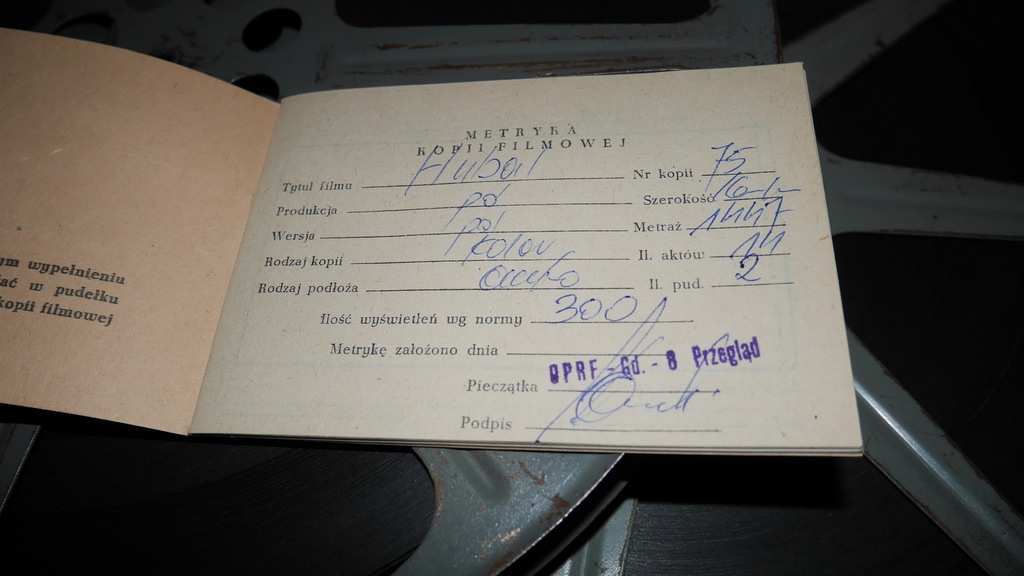 ym wypełnieniu
ać w pudełku
kopii filmowej
METRYKA
KOPII FILMOWEJ
Tytuł filmu Hubal Nr kopii 75
Produkcja pol Szerokość
Wersja pol Metraż 1447
Rodzaj kopii kolor Il. aktów
Rodzaj podłoża Il. pud. 2
Ilość wyświetleń wg normy 300
Metrykę założono dnia
Pieczątka OPRF - Gd. - 8 Przegląd
Podpis